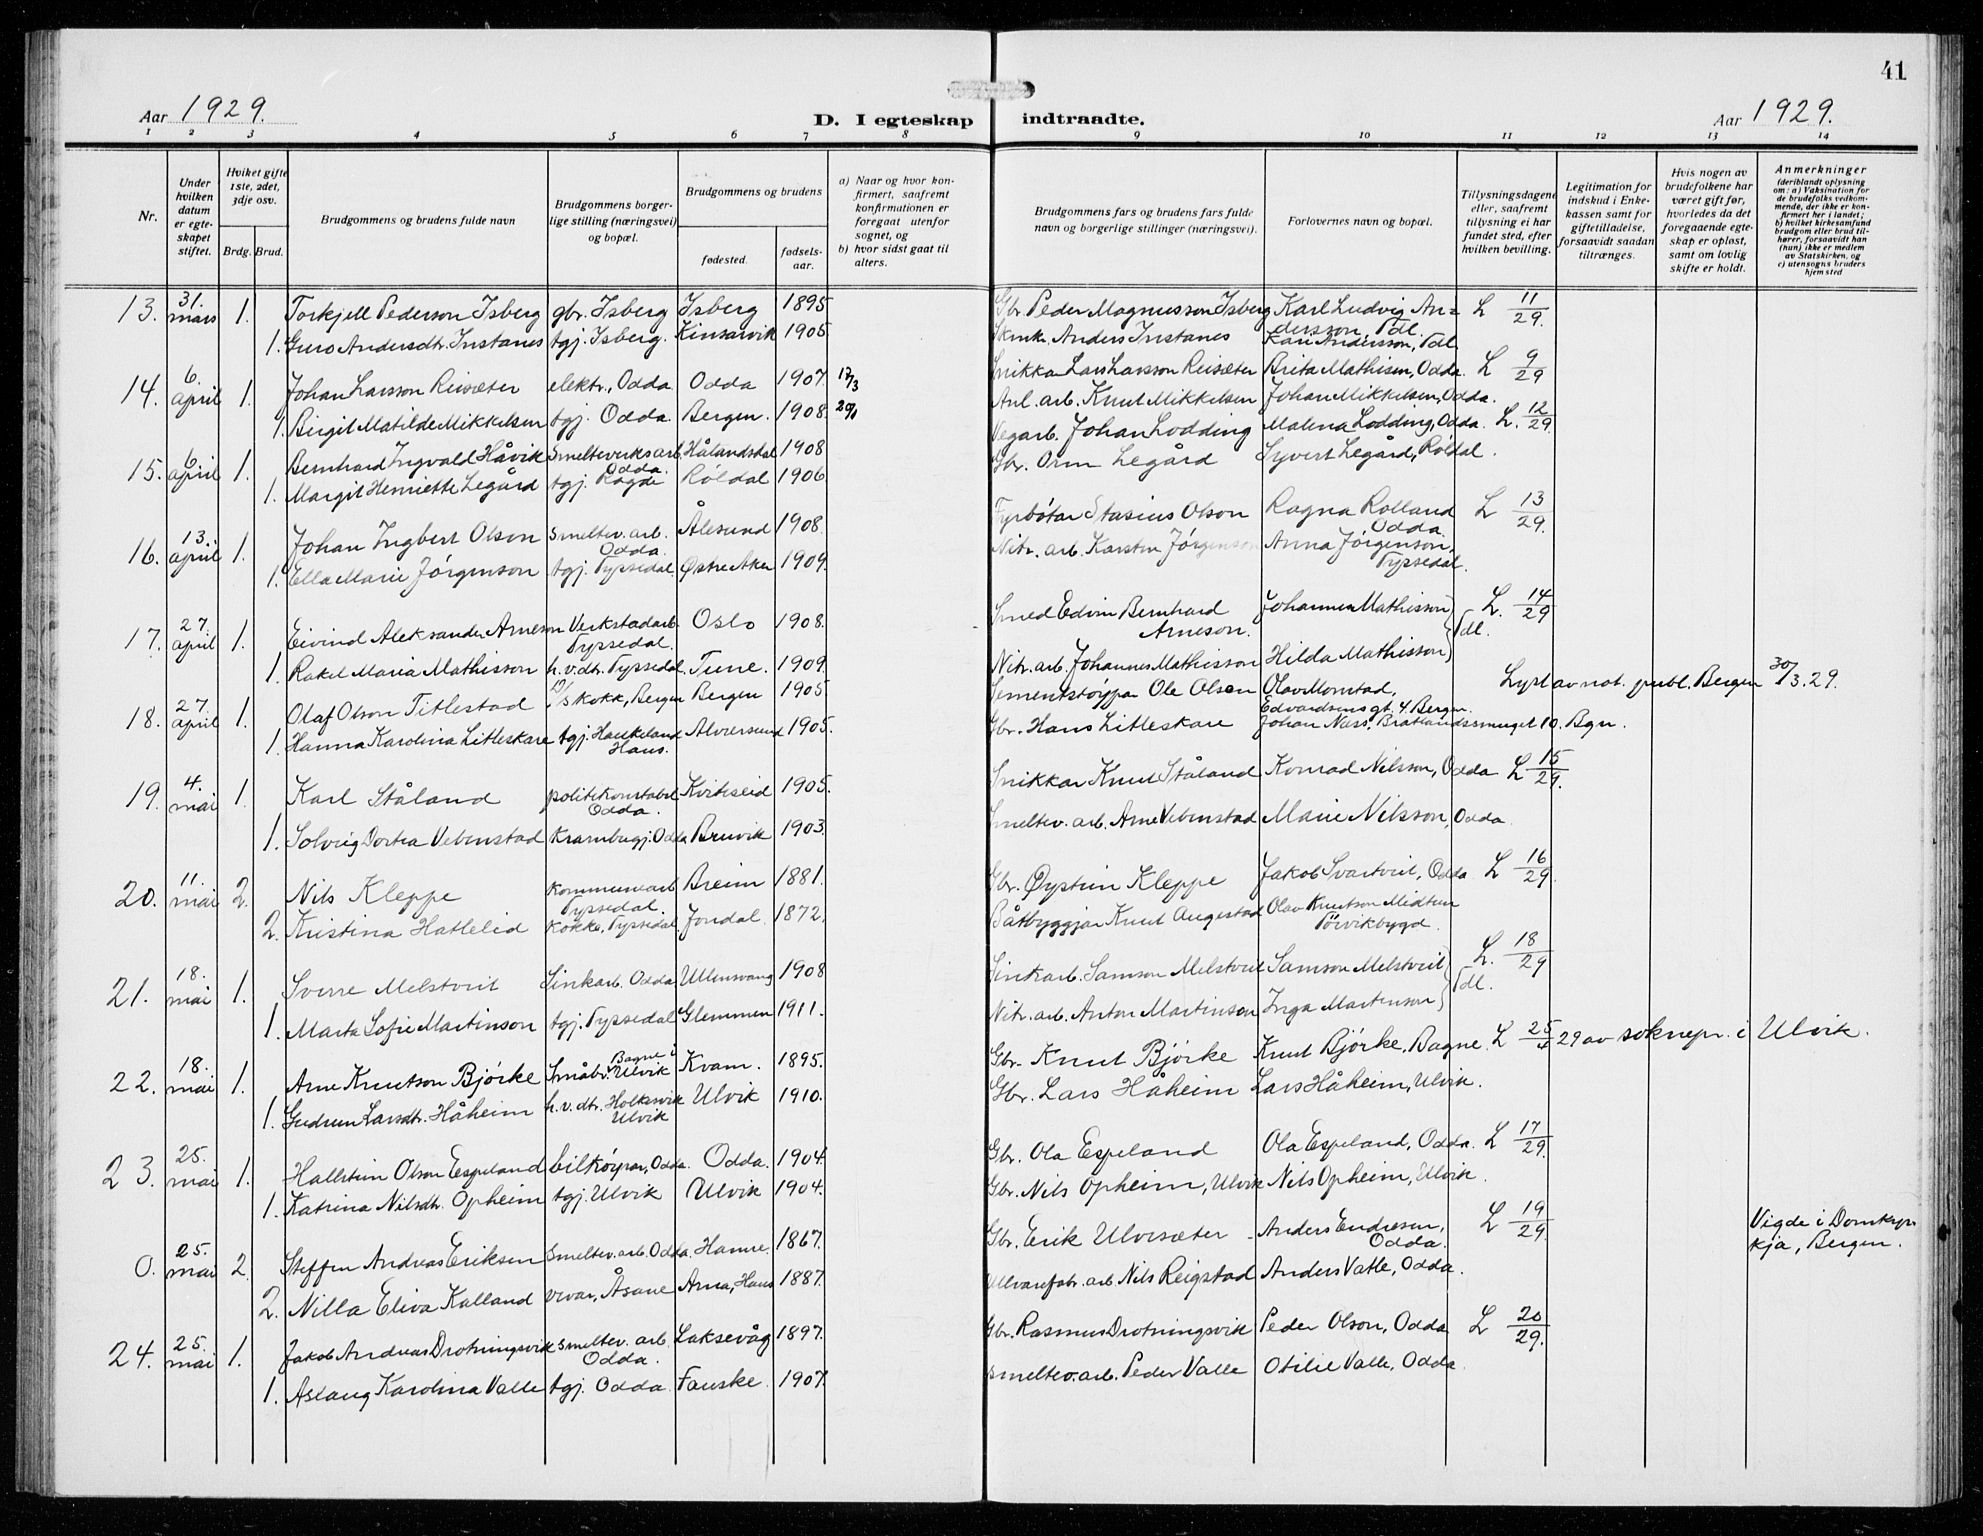 41
Aar 1929. D. I egteskap indtraadte. Aar 1929.
1 2 3 4 5 6 7 8 9 10 11 12 13 14
Nr.
Under hvilken datum er egteskapet stiftet.
Hviket gifte 1ste, 2det, 3dje osv.
Brdg. Brud.
Brudgommens og brudens fulde navn
Brudgommens borgerlige stilling (næringsvei) og bopæl.
Brudgommens og brudens
fødested. fødselsaar.
a) Naar og hvor konfirmert, saafremt konfirmationen er foregaat utenfor sognet, og
b) hvor sidst gaat til alters.
Brudgommens fars og brudens fars fulde navn og borgerlige stillinger (næringsvei).
Forlovernes navn og bopæl.
Tillysningsdagene eller, saafremt tillysning ei har fundet sted, efter hvilken bevilling.
Legitimation for indskud i Enkekassen samt for giftetilladelse, forsaavidt saadan tiltrænges.
Hvis nogen av brudefolkene har været gift før, hvorledes da det foregaaende egteskap er opløst, samt om lovlig skifte er holdt.
Anmerkninger
(deriblandt oplysning om: a) Vaksination for de brudefolks vedkommende, der ikke er konfirmert her i landet; b) hvilket kirkesamfund brudgom eller brud tilhører, forsaavidt han (hun) ikke er medlem av Statskirken, og c) utensogns bruders hjemsted
13. 31. mars 1. Torkjell Pederson Isberg gbr. Isberg Isberg 1895 Gbr. Peder Magnusson Isberg Karl Ludvig Andersson, Tdl. L 11/29.
1. Guro Andersdtr. Instanes tgj. Isberg. Kinsarvik 1905 Anders Instanes Kari Andersson, Tdl.
14. 6. april 1. Johan Larsson Reisæter elektr., Odda Odda 1907. 17/3 Snikkar Lars Larsson Reisæter Brita Mathisen, Odda. L 9/29
1. Birgit Matilde Mikkelsen tgj. Odda Bergen. 1908. Anl. arb. Knut Mikkelsen Johan Mikkelsen, Odda.
15. 6. april 1. Bernhard Ingvald Håvik Smelteverksarb. Odda. Hålandsdal 1908 Vegarb. Johan Lodding Malena Lodding, Odda. L. 12/29.
1. Margit Henriette Legård tgj. Røldal 1906 Gbr. Orm Legård Syvert Legård, Røldal.
16. 13. april 1. Johan Ingbert Olson smeltev. arb. Odda. Ålesund 1908. Fyrbøtar Stasius Olson Ragna Rolland Odda. L 13/29.
1. Ella Marie Jørgenson tgj. Tyssedal Østre Aker 1909. Nitr. arb. Karsten Jørgenson Anna Jørgenson, Tyssedal.
17. 27. april 1. Eivind Aleksander Arneson Verkstadarb. Tyssedal. Oslo 1908. Smed Edvin Bernhard Arneson. Johannes Mathisson L. 14/29
1. Rakel Maria Mathisson h.v.dtr. Tyssedal. Tune. 1909. Nitr. arb. Johannes Mathisson Hilda Mathisson Tdl.
18. 27. april 1. Olaf Olson Titlestad D/S kokk, Bergen Bergen 1905 Sementstøypar Ole Olsen Olav Monstad, Edvardsens gt. 4 Bergen. Lyst av not. publ. Bergen 30/3. 29.
1. Hanna Karolina Litleskare tgj. Haukeland Haus. Alversund 1905. Gbr. Hans Litleskare Johan Næss, Bratlandssmuget 10. Bgn.
19. 4. mai 1. Karl Ståland politikonstabel Odda. Kviteseid 1905. Snikkar Knut Ståland Konrad Nilsson, Odda L 15/29.
1. Solveig Dortea Vebenstad Krambugj. Odda Bruvik 1903. Smeltev. arb. Arne Vebenstad Marie Nilsson, Odda
20. 11. mai 2. Nils Kleppe kommunearb. Tyssedal. Breim 1881. Gbr. Øystein Kleppe Jakob Svartveit, Odda L 16/29.
2. Kristina Hatleleid Kokke, Tyssedal. Jondal. 1872. Båtbyggjar Knut Augestad Olav Knutson Midtun Tørvikbygd.
21. 18. mai 1. Sverre Melstveit Sinkarb. Odda Ullensvang 1908 Sinkarb. Samson Melstveit Samson Melstveit L. 18/29
1. Marta Sofie Martinson tgj. Tyssedal Glemmen 1911. Nitr. arb. Anton Martinson Inga Martinson Tdl.
22. 18. mai 1. Arne Knutson Bjørke Småbr. Bagne i Ulvik Kvam. 1895. Gbr. Knut Bjørke Knut Bjørke, Bagne. L 25/4 29 av soknepr. i Ulvik.
1. Gudrun Larsdtr. Håheim h.v.dtr. Holksvik Ulvik Ulvik 1910. Gbr. Lars Håheim Lars Håheim, Ulvik.
23. 25. mai 1. Hallstein Olson Espeland bilkøyrar, Odda. Odda. 1904. Gbr. Ola Espeland Ola Espeland, Odda. L 17/29.
1. Katrina Nilsdtr. Opheim tgj. Ulvik Ulvik 1904. Gbr. Nils Opheim, Ulvik Nils Opheim, Ulvik.
0. 25. mai 2. Steffen Andreas Eriksen Smeltev. arb. Odda. Hamre. 1867. Gbr. Erik Ulvesæter Anders Endresen, Odda. L 19/29. Vigde i Domkyrkja, Bergen.
2. Nilla Eliva Kalland Åsane Arna, Haus 1887. Ullvarefabr. arb. Nils Reigstad Anders Vatle, Odda.
24. 25. mai 1. Jakob Andreas Drotningsvik smeltev. arb. Odda. Laksevåg 1897. Gbr. Rasmus Drotningsvik Peder Olson, Odda L 20/29.
1. Aslaug Karolina Valle tgj. Odda. Fauske. 1907. Smeltev. arb. Peder Valle Otilie Valle, Odda.